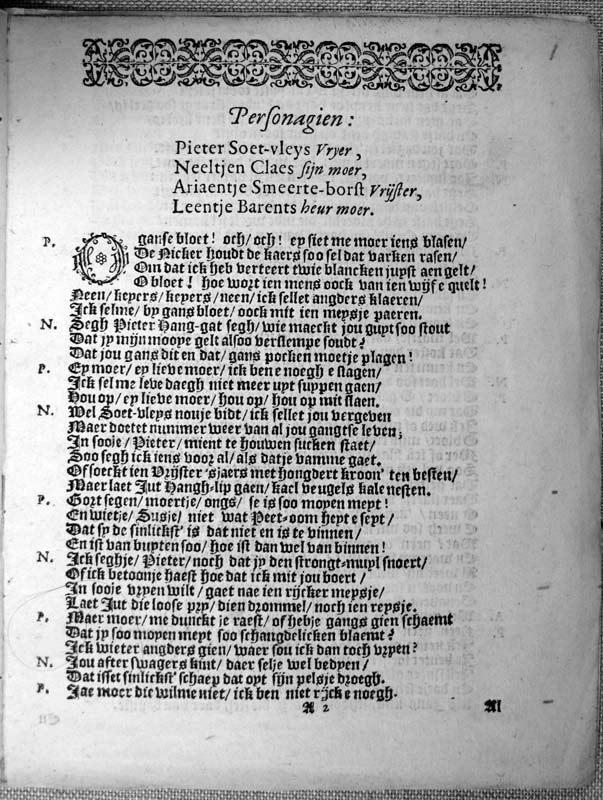 Personagien:
Pieter Soet-vleys Vryer,
Neeltjen Claes sijn moer,
Ariaentje Smeerte-borst Vrijster,
Leentje Barents heur moer.
P. O ganse bloet! och/ och! ey siet me moer iens blasen/
De Nicker houdt de kaers soo sel dat varken rasen/
Om dat ick heb verteert twie blancken juyst aen gelt/
O bloet! hoe wort ien mens oock van ien wijf equelt!
Neen/ keyers/ keyers/ neen/ ick sellet angders klaeren/
Ick selme/ by gans bloet/ oock mit ien meysje paeren.
N. Segh Pieter Hang-gat segh/ wie maeckt jou guyt soo stout
Dat jy mijn mooye gelt alsoo verslempe soudt?
Dat jou gans dit en dat/ gans pocken moetje plagen!
P. Ey moer/ ey lieve moer/ ick ben enoegh eslagen/
Ick sel me leve daegh niet meer uyt suypen gaen/
Hou op/ ey lieve moer/ hou op/ hou op mit slaen.
N. Wel Soet-vleys nou je bidt/ ick sellet jou vergeven
Maer doetet nummer weer van al jou gangtse leven;
In sooje/ Pieter/ mient te houwen sucken staet/
Soo segh ick iens voor al/ als datje vamme gaet.
Of soeckt ien Vrijster 'sjaers met hongdert kroon' ten besten/
Maer laet Jut Hangh-lip gaen/ kael veugels kale nesten.
P. Gort segen/ moertje/ ongs/ se is soo moyen meyt!
En wietje/ Susje/ niet wat Peet-oom heyt eseyt/
Dat sy de sinlickst' is dat niet en is te vinnen/
En ist van buyten soo/ hoe ist dan wel van binnen!
N. Ick seghje/ Pieter/ noch dat jy den strongt-muyl snoert/
Of ick betoonje haest hoe dat ick mit jou boert/
In sooje vryen wilt/ gaet nae ien rijcker meysje/
Laet Jut die loose pry/ dien drommel/ noch ien reysje.
P. Maer moer/ me dunckt je raest/ of hebje gangs gien schaemt
Dat jy soo moyen meyt soo schangdelicken blaemt?
Ick wieter angders gien/ waer sou ick dan toch vryen?
N. Jou after swagers kint/ daer selje wel bedyen/
Dat isset sinlickst' schaep dat oyt sijn pelsje droegh.
P. Jae moer die wilme niet/ ick ben niet rijck enoegh.
A 2 Al